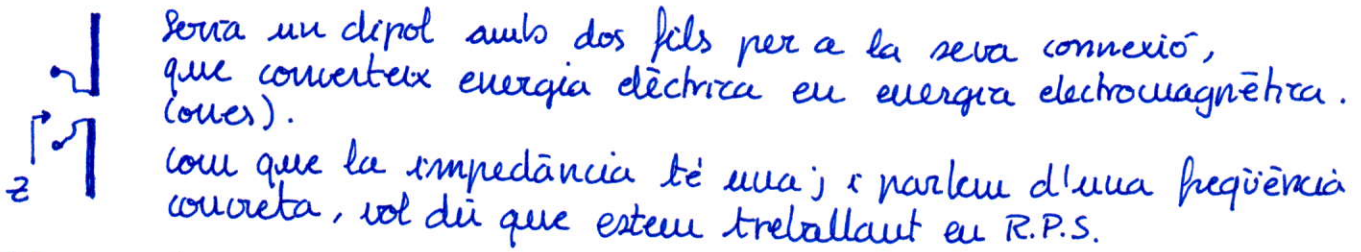 Seria un dipol amb dos fils per a la seva connexió,
que converteix energia elèctrica en energia electromagnètica.
(ones).
Com que la impedància té una j i parlem d'una freqüència
Z concreta, vol dir que estem treballant en R.P.S.